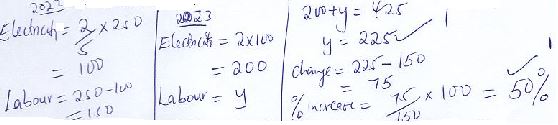 2022
Electricity = 2/5 × 250
= 100
Labour = 250 - 100
= 150
2023
Electricity = 2×100
= 200
Labour = y
200 + y = 425
y = 225 ✓ 1
Change = 225 - 150
= 75
% increase = 75/150 × 100 = 50% ✓ 1